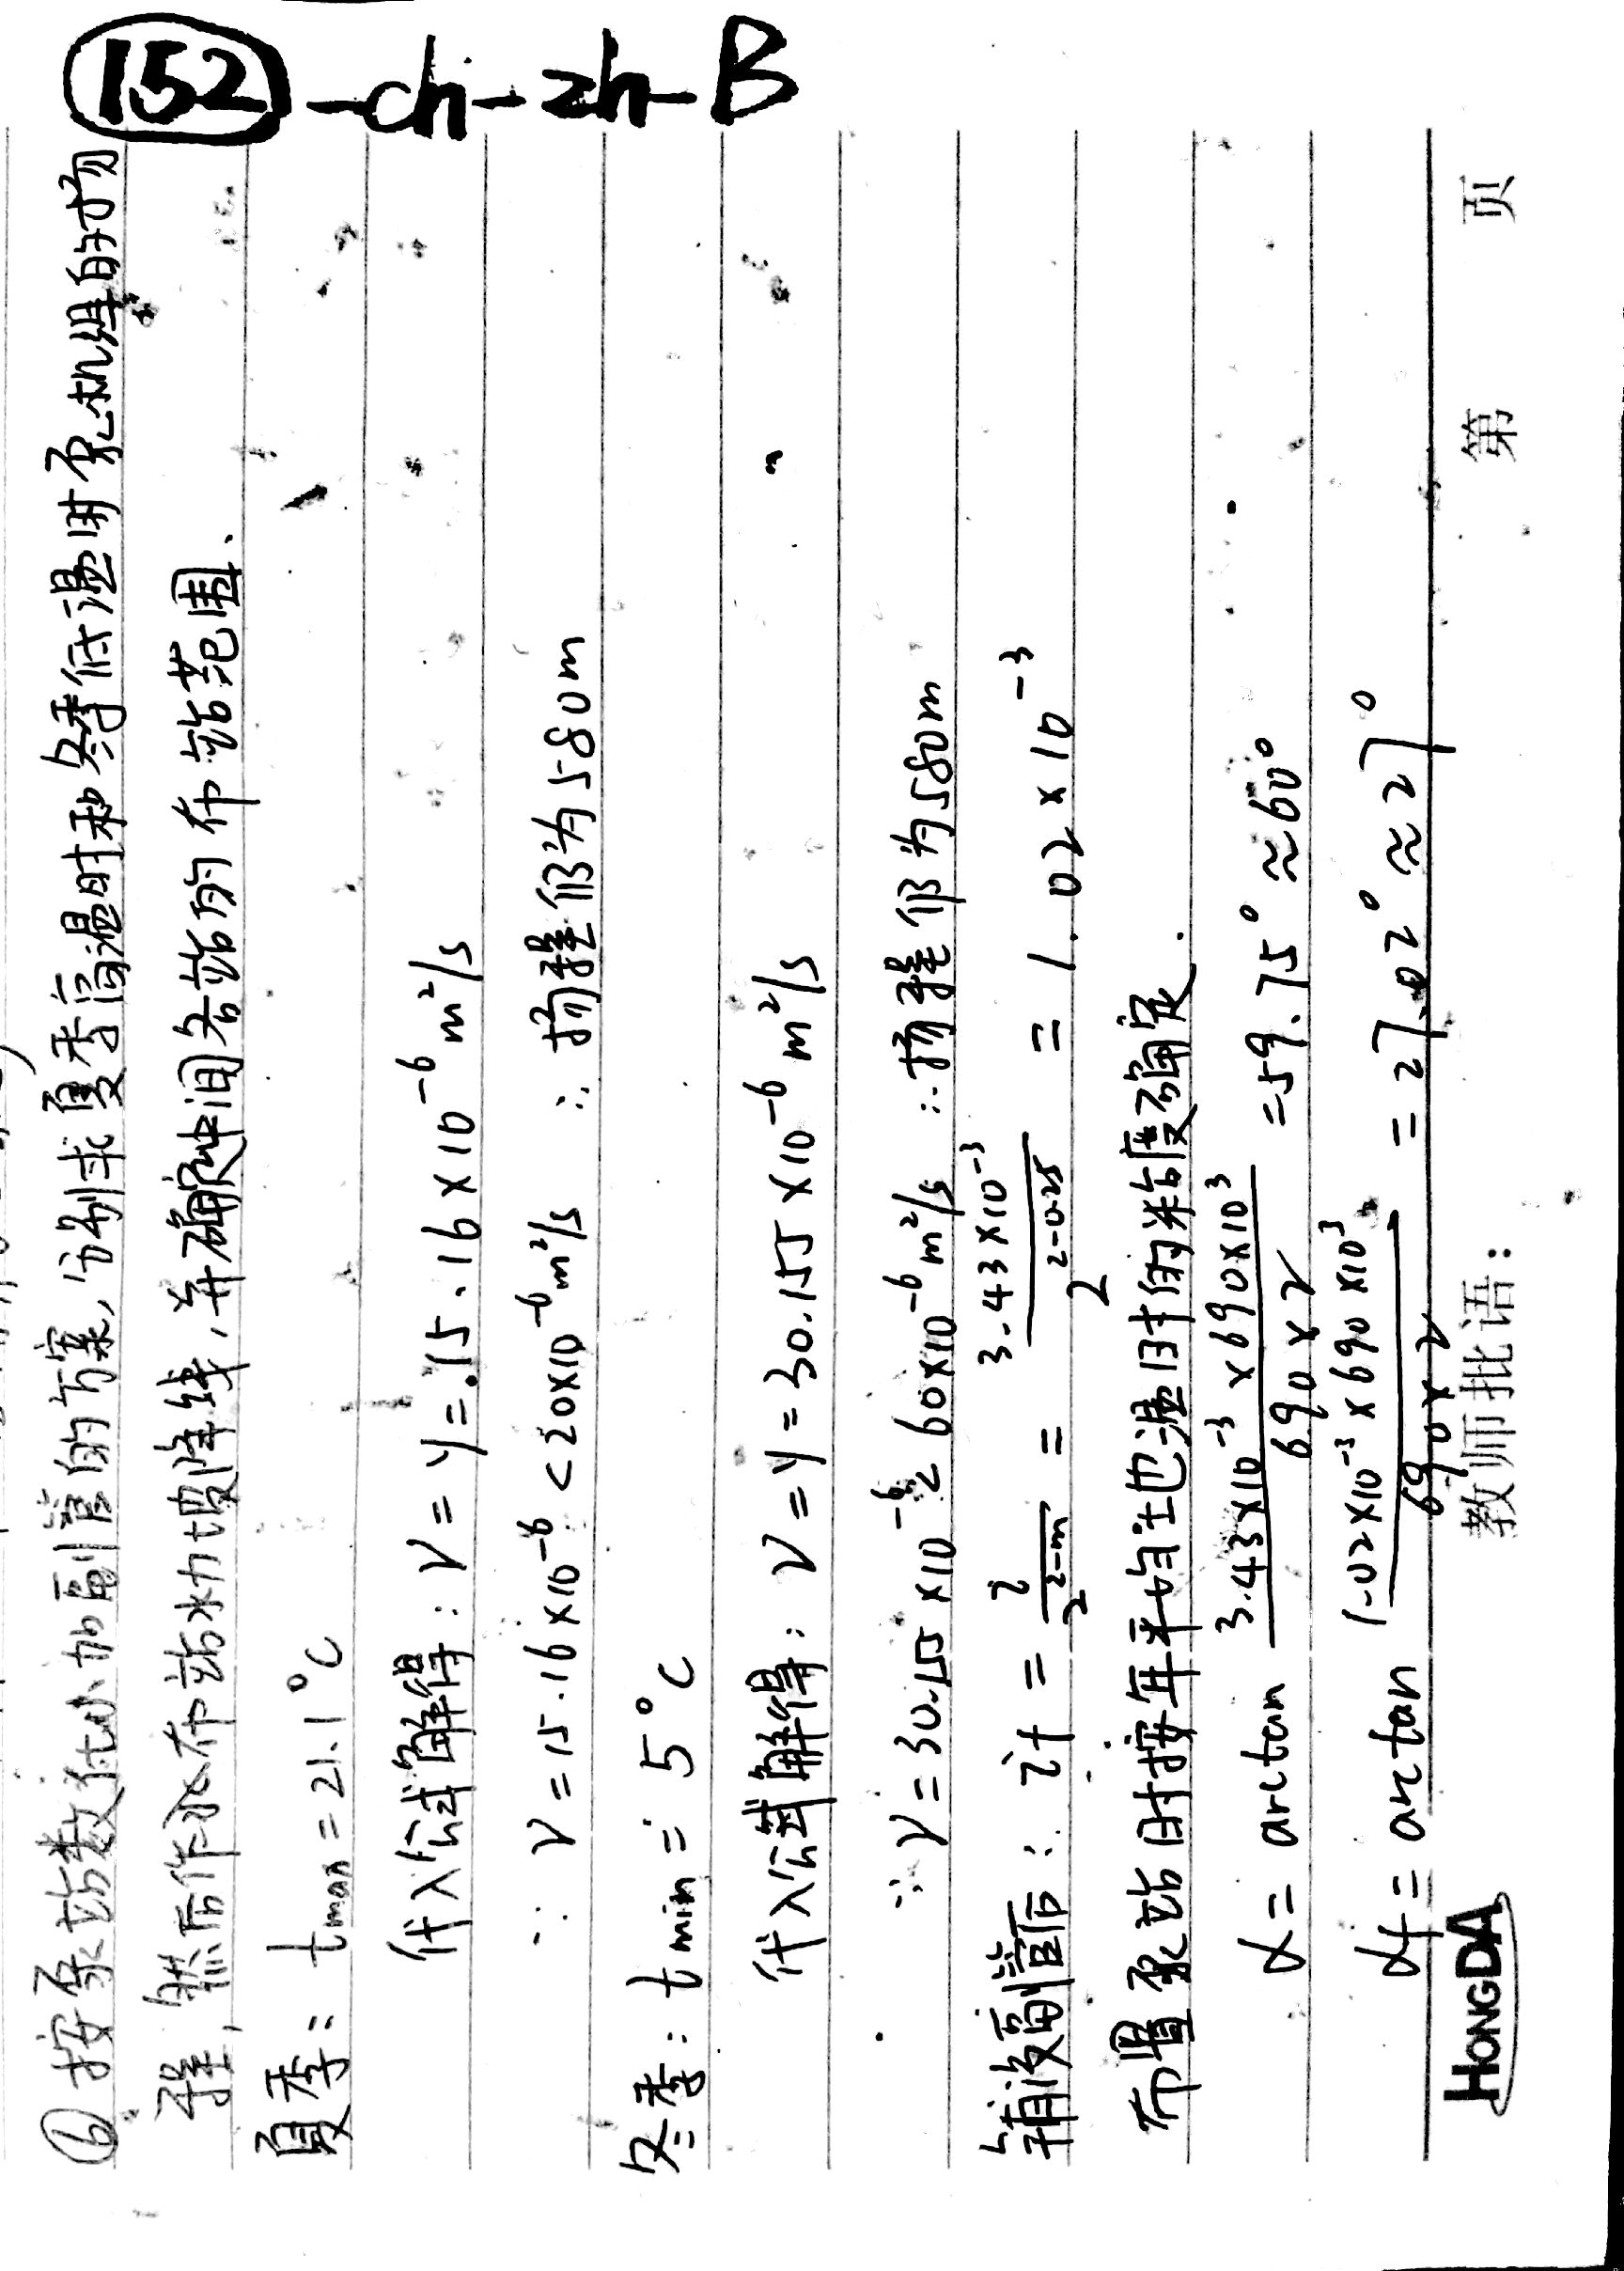 152-ch-zh-B
⑥ 按泵站数往小加副管的方案,分别求夏季高温时和冬季低温时泵机组的扬
程,然后作水布站水力坡降线,并确定中间各站的布站范围、
夏季: tmax = 21.1°C
代入公式解得: ν = y = 15.16×10⁻⁶ m²/s
∵ ν = 15.16×10⁻⁶ < 20×10⁻⁶ m²/s ∴ 扬程仍为580m
冬季: tmin = 5°C
代入公式解得: ν = y = 30.155×10⁻⁶ m²/s
∵ ν = 30.155×10⁻⁶ ≤ 60×10⁻⁶ m²/s ∴ 扬程仍为580m
铺设副管后: if = i/2^(2-m) = 3.43×10⁻³/2^(2-0.25) = 1.02×10⁻³
布置泵站时按年平均土地温时的粘度确定.
α = arctan (3.43×10⁻³×690×10³)/(690×2) = 59.75° ≈ 60°
αf = arctan (1.02×10⁻³×690×10³)/(690×2) = 27.02° ≈ 27°
HONGDA 教师批语: 第 页